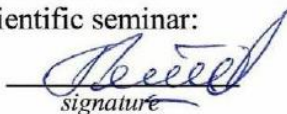 ientific seminar:
signature